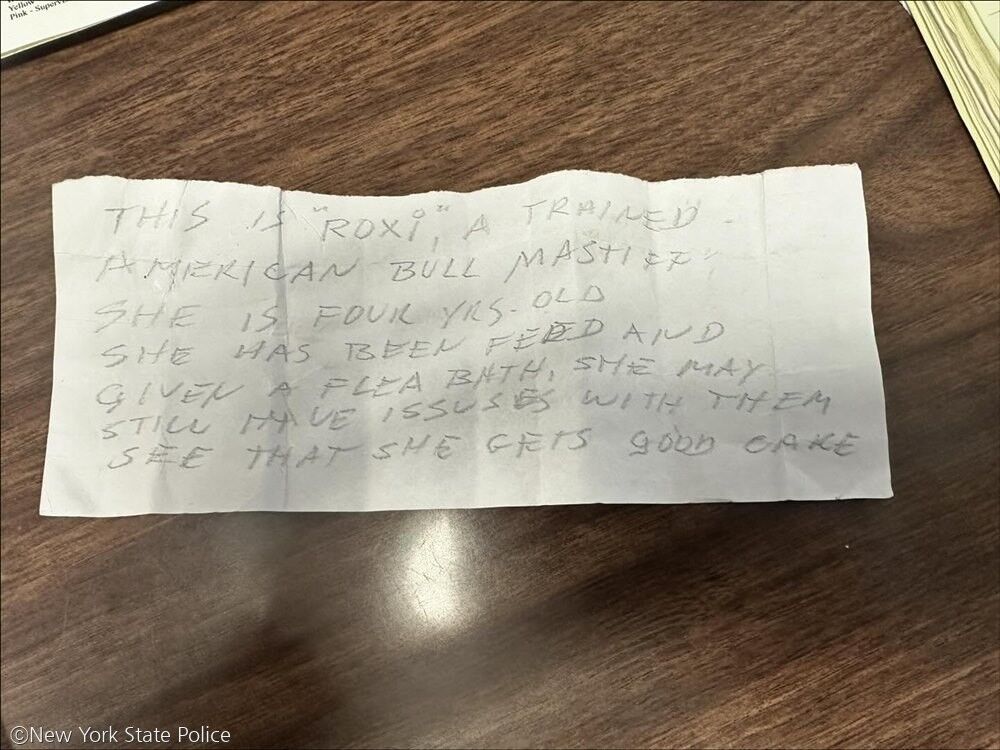 Yellow
Pink - Superv
THIS IS "ROXi", A TRAINED
AMERICAN BULL MASTIFF
SHE IS FOUR YRS. OLD
SHE HAS BEEN FEED AND
GIVEN A FLEA BATH, SHE MAY
STILL HAVE ISSUSES WITH THEM
SEE THAT SHE GETS GOOD CARE
©New York State Police